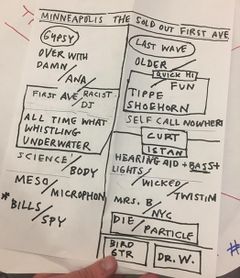 MINNEAPOLIS THE SOLD OUT FIRST AVE
GYPSY
OVER WITH
DAMN/
ANA/
FIRST AVE/RACIST-
DJ
ALL TIME WHAT
WHISTLING
UNDERWATER
SCIENCE/
BODY
MESO/
MICROPHON
*BILLS/
SPY
LAST WAVE
OLDER/
QUICK HI
FUN
TIPPE
SHOEHORN
SELF CALL NOWHERE
CURT
ISTAN
HEARING AID + BASS+
LIGHTS/
WICKED/
TWISTIN
MRS. B/
NYC
DIE/
PARTICLE
BIRD
STR
DR. W.
#